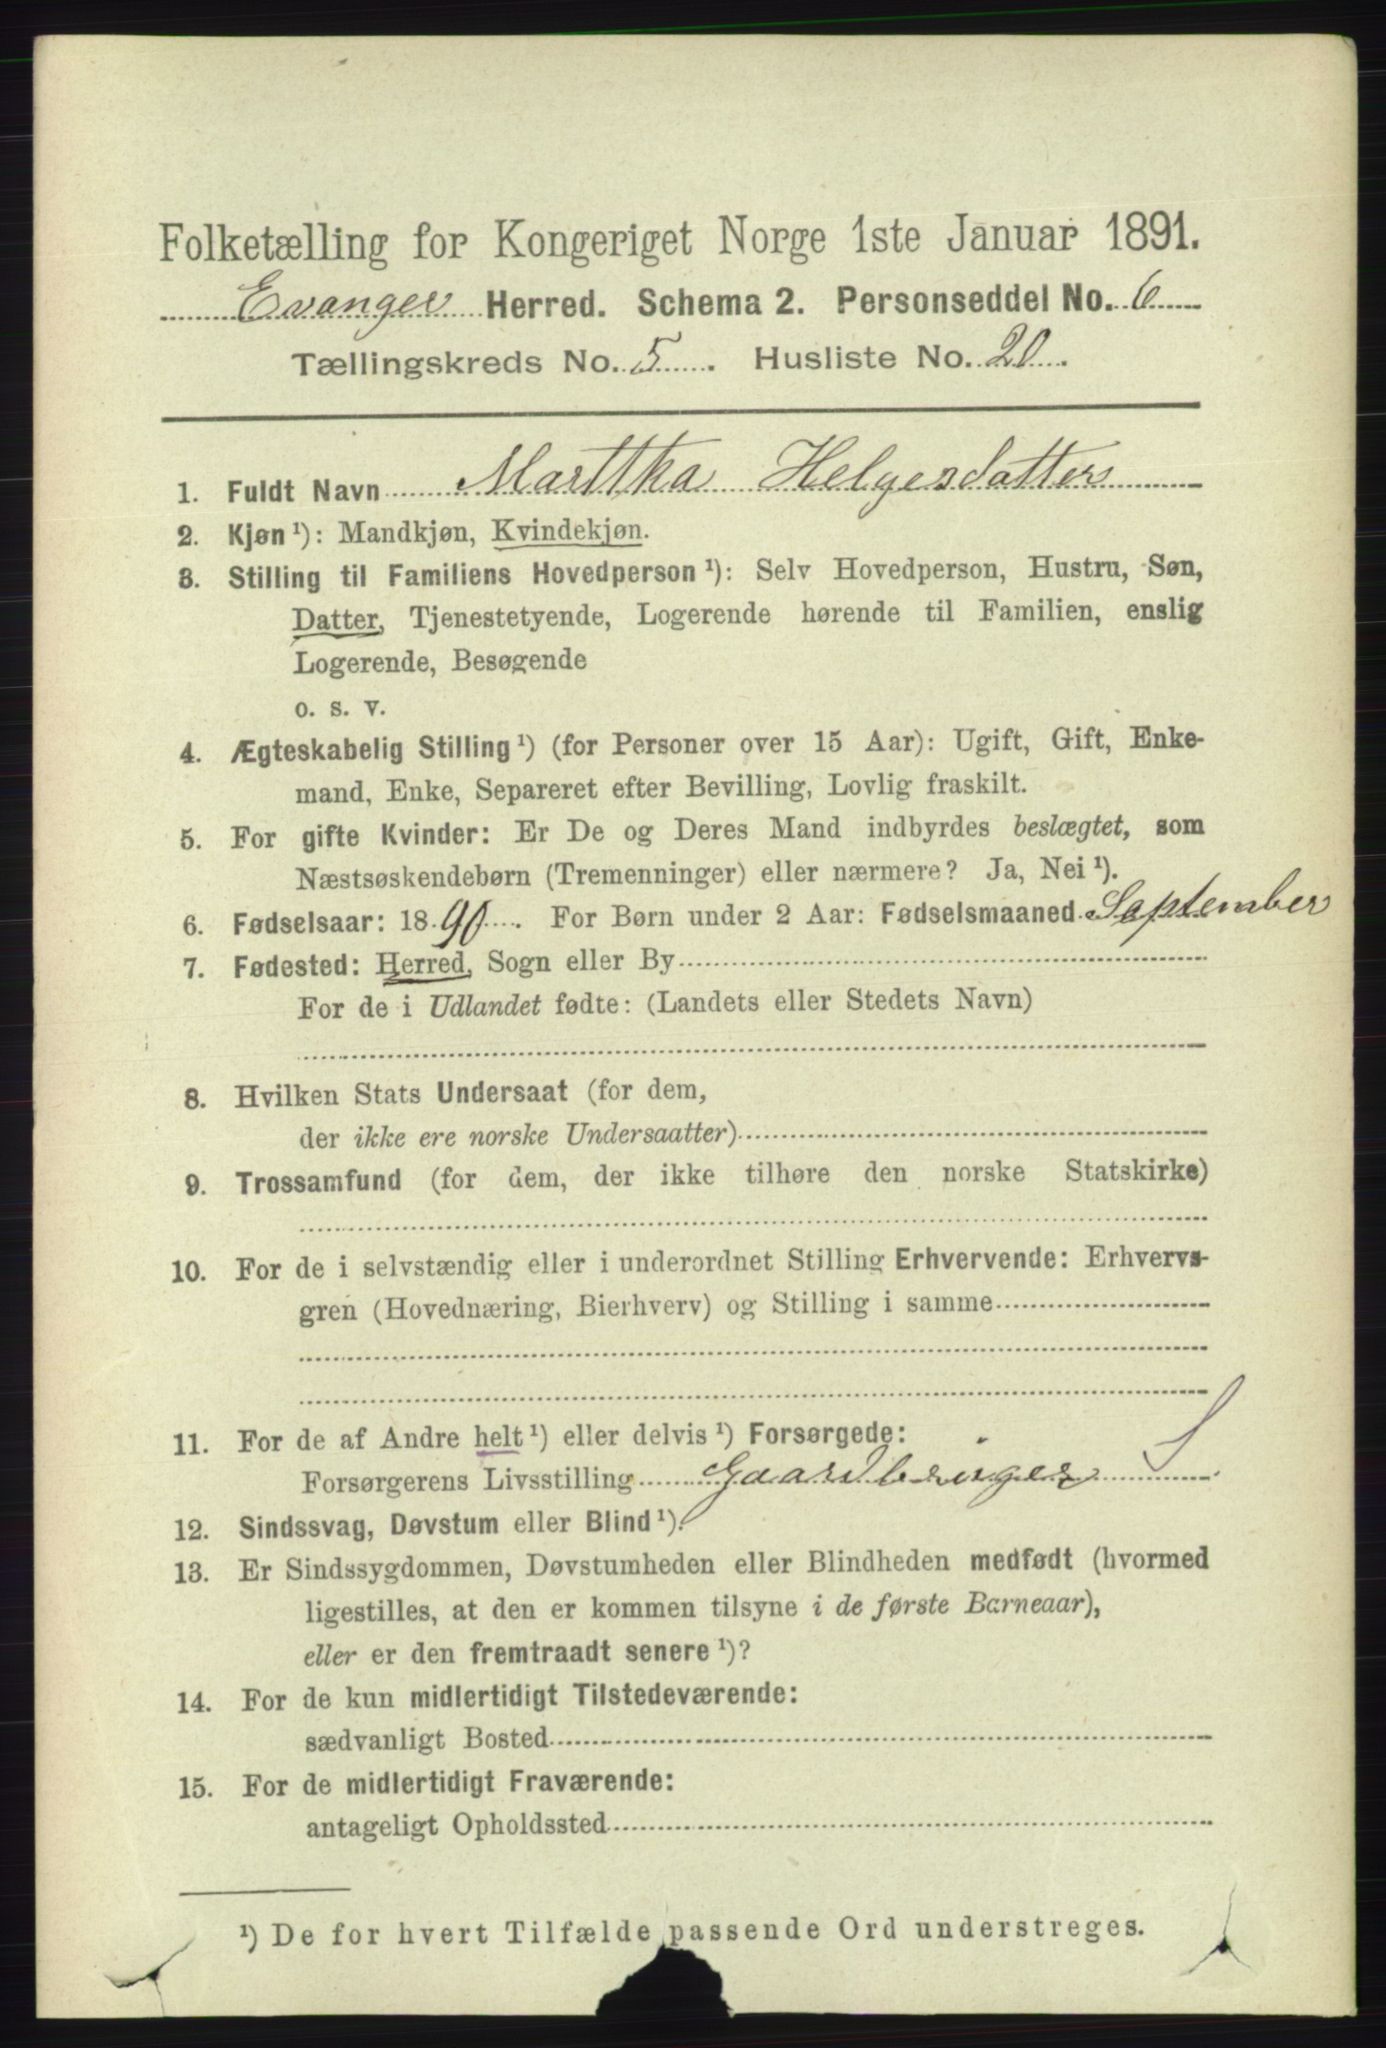 Folketælling for Kongeriget Norge 1ste Januar 1891.
Evanger Herred. Schema 2. Personseddel No. 6
Tællingskreds No. 5. Husliste No. 20.
1. Fuldt Navn Marttha Helgesdatter
2. Kjøn ¹): Mandkjøn, Kvindekjøn.
3. Stilling til Familiens Hovedperson ¹): Selv Hovedperson, Hustru, Søn,
Datter, Tjenestetyende, Logerende hørende til Familien, enslig
Logerende, Besøgende
o. s. v.
4. Ægteskabelig Stilling ¹) (for Personer over 15 Aar): Ugift, Gift, Enke-
mand, Enke, Separeret efter Bevilling, Lovlig fraskilt.
5. For gifte Kvinder: Er De og Deres Mand indbyrdes beslægtet, som
Næstsøskendebørn (Tremenninger) eller nærmere? Ja, Nei ¹).
6. Fødselsaar: 1890. For Børn under 2 Aar: Fødselsmaaned September
7. Fødested: Herred, Sogn eller By
For de i Udlandet fødte: (Landets eller Stedets Navn)
8. Hvilken Stats Undersaat (for dem,
der ikke ere norske Undersaatter)
9. Trossamfund (for dem, der ikke tilhøre den norske Statskirke)
10. For de i selvstændig eller i underordnet Stilling Erhvervende: Erhvervs-
gren (Hovednæring, Bierhverv) og Stilling i samme
11. For de af Andre helt ¹) eller delvis ¹) Forsørgede:
Forsørgerens Livsstilling Gaardbruger S
12. Sindssvag, Døvstum eller Blind ¹).
13. Er Sindssygdommen, Døvstumheden eller Blindheden medfødt (hvormed
ligestilles, at den er kommen tilsyne i de første Barneaar),
eller er den fremtraadt senere ¹)?
14. For de kun midlertidigt Tilstedeværende:
sædvanligt Bosted
15. For de midlertidigt Fraværende:
antageligt Opholdssted
¹) De for hvert Tilfælde passende Ord understreges.